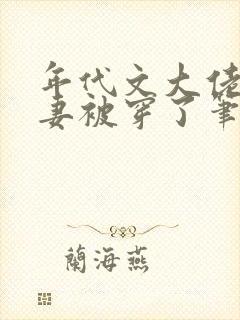 年代文大佬
妻被穿了筆
蘭海燕